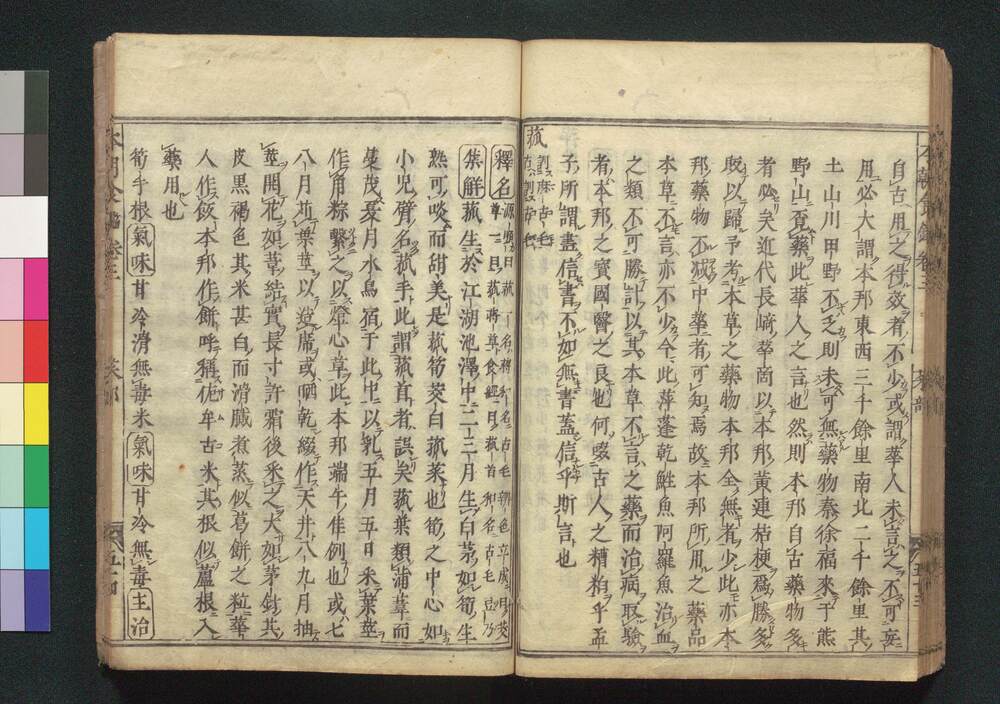 自古用之得效者不少或謂華人未言之不可妄
用必大謂本邦東西三千餘里南北二千餘里其
土山川甲野不乏則未可無藥物秦徐福來于熊
野山覓藥此華人之言也然則本邦自古藥物多
者必矣近代長崎華商以本邦黃連桔梗爲勝多
取以歸予考本草之藥物本邦全無者少此亦本
邦藥物不減中華者可知焉故本邦所用之藥品
本草不言亦不少今此萍蓬乾鮏魚阿羅魚治血
之類不可勝計以其本草不言之藥而治病取驗
者本邦之寶國醫之良也何啜古人之糟粕乎孟
子所謂盡信書不如無書蓋信乎斯言也
菰
釋名
集解菰生於江湖池澤中二三月生白芽如筍生
熟可啖而甜美是菰筍茭白菰菜也筍之中心如
小兒臂名菰手此謂菰首者誤矣菰葉類蒲葦而
蔓茂夏月水鳥宿于此中以乳五月五日采葉莖
作角粽繫之以燈心草此本邦端午佳例也或七
八月苅葉莖以造席或晒乾綴作天井八九月抽
莖開花如葦結實長寸許霜後采之大如茅針其
皮黑褐色其米甚白而滑膩煮蒸似葛餅之粒華
人作飯本邦作餅呼稱佐牟古米其根似蘆根入
藥用也
筍手根氣味甘冷滑無毒米氣味甘冷無毒主治